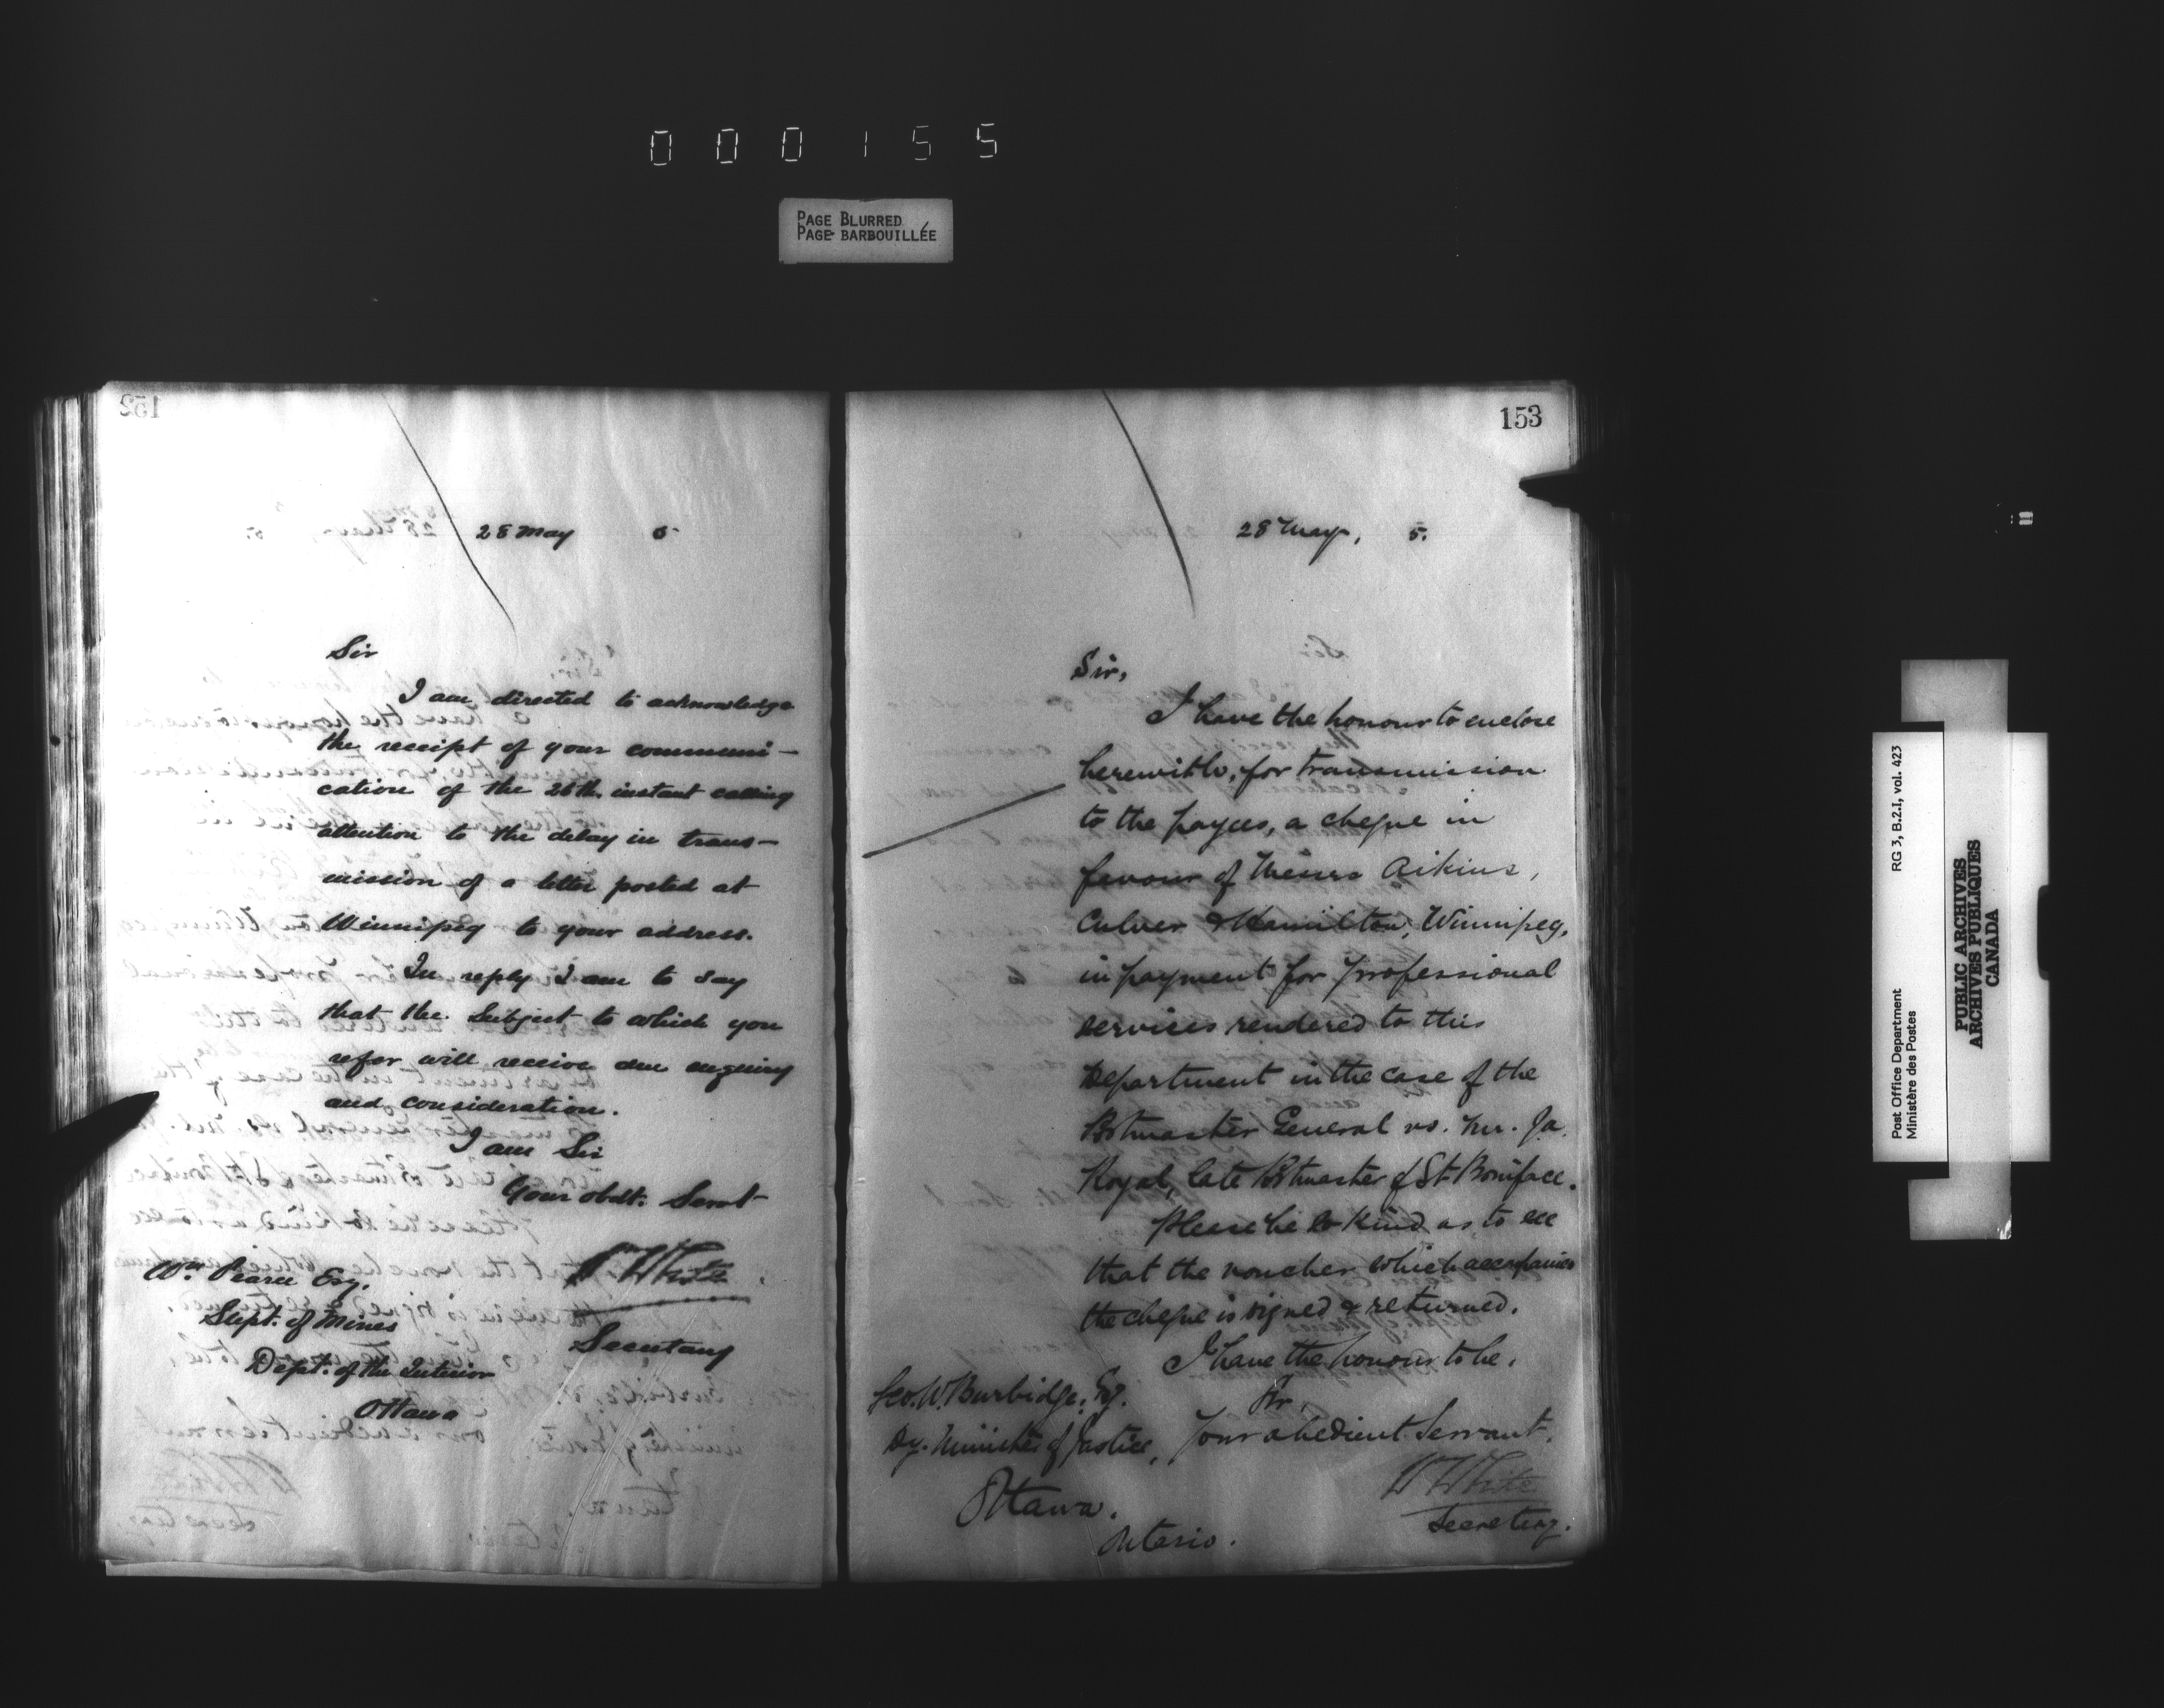 000155
PAGE BLURRED
PAGE BARBOUILLÉE
152
28 May 5
Sir
I am directed to acknowledge
the receipt of your communi-
cation of the 26th instant calling
attention to the delay in trans-
mission of a letter posted at
Winnipeg to your address.
In reply I am to say
that the Subject to which you
refer will receive due enquiry
and consideration.
I am Sir
Your obdt. Servt
W White
Secretary
Wm. Pearce Esq.
Supt. of Mines
Dept. of the Interior
Ottawa
153
28 May, 5.
Sir,
I have the honour to enclose
herewith, for transmission
to the payees, a cheque in
favour of Messrs Aikins,
Culver & Hamilton, Winnipeg,
in payment for professional
services rendered to this
Department in the case of the
Postmaster General vs. Mr. Ja.
Royal, late Postmaster of St. Boniface.
Please be so kind as to see
that the voucher which accompanies
the cheque is signed & returned.
I have the honour to be,
Sir,
Your obedient Servant.
W White
Secretary.
Geo. W. Burbidge, Esq.
Dy. Minister of Justice,
Ottawa.
Ontario.
Post Office Department
Ministère des Postes
RG 3, B.2.I, vol. 423
PUBLIC ARCHIVES
ARCHIVES PUBLIQUES
CANADA